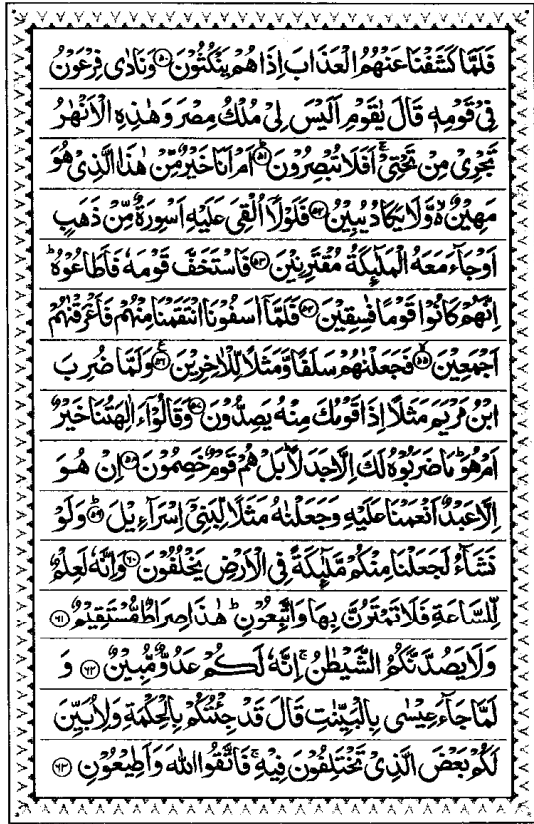 فَلَمَّا كَشَفْنَا عَنْهُمُ الْعَذَابَ اِذَا هُمْ يَنْكُثُوْنَ ﴿۵۰﴾ وَنَادٰى فِرْعَوْنُ
فِيْ قَوْمِهٖ قَالَ يٰقَوْمِ اَلَيْسَ لِيْ مُلْكُ مِصْرَ وَهٰذِهِ الْاَنْهٰرُ
تَجْرِيْ مِنْ تَحْتِيْ ۚ اَفَلَا تُبْصِرُوْنَ ؕ﴿۵۱﴾ اَمْ اَنَا خَيْرٌ مِّنْ هٰذَا الَّذِيْ هُوَ
مَهِيْنٌ ۙ۬ وَّلَا يَكَادُ يُبِيْنُ ﴿۵۲﴾ فَلَوْلَاۤ اُلْقِيَ عَلَيْهِ اَسْوِرَةٌ مِّنْ ذَهَبٍ
اَوْ جَآءَ مَعَهُ الْمَلٰٓئِكَةُ مُقْتَرِنِيْنَ ﴿۵۳﴾ فَاسْتَخَفَّ قَوْمَهٗ فَاَطَاعُوْهُ ؕ
اِنَّهُمْ كَانُوْا قَوْمًا فٰسِقِيْنَ ﴿۵۴﴾ فَلَمَّاۤ اٰسَفُوْنَا انْتَقَمْنَا مِنْهُمْ فَاَغْرَقْنٰهُمْ
اَجْمَعِيْنَ ۙ﴿۵۵﴾ فَجَعَلْنٰهُمْ سَلَفًا وَّمَثَلًا لِّلْاٰخِرِيْنَ ﴿۵۶﴾ وَلَمَّا ضُرِبَ
ابْنُ مَرْيَمَ مَثَلًا اِذَا قَوْمُكَ مِنْهُ يَصِدُّوْنَ ﴿۵۷﴾ وَقَالُوْۤا ءَاٰلِهَتُنَا خَيْرٌ
اَمْ هُوَ ؕ مَا ضَرَبُوْهُ لَكَ اِلَّا جَدَلًا ؕ بَلْ هُمْ قَوْمٌ خَصِمُوْنَ ﴿۵۸﴾ اِنْ هُوَ
اِلَّا عَبْدٌ اَنْعَمْنَا عَلَيْهِ وَجَعَلْنٰهُ مَثَلًا لِّبَنِيْۤ اِسْرَآءِيْلَ ؕ﴿۵۹﴾ وَلَوْ
نَشَآءُ لَجَعَلْنَا مِنْكُمْ مَّلٰٓئِكَةً فِي الْاَرْضِ يَخْلُفُوْنَ ﴿۶۰﴾ وَاِنَّهٗ لَعِلْمٌ
لِّلسَّاعَةِ فَلَا تَمْتَرُنَّ بِهَا وَاتَّبِعُوْنِ ؕ هٰذَا صِرَاطٌ مُّسْتَقِيْمٌ ﴿۶۱﴾
وَلَا يَصُدَّنَّكُمُ الشَّيْطٰنُ ۚ اِنَّهٗ لَكُمْ عَدُوٌّ مُّبِيْنٌ ﴿۶۲﴾ وَ
لَمَّا جَآءَ عِيْسٰى بِالْبَيِّنٰتِ قَالَ قَدْ جِئْتُكُمْ بِالْحِكْمَةِ وَلِاُبَيِّنَ
لَكُمْ بَعْضَ الَّذِيْ تَخْتَلِفُوْنَ فِيْهِ ۚ فَاتَّقُوا اللّٰهَ وَاَطِيْعُوْنِ ﴿۶۳﴾